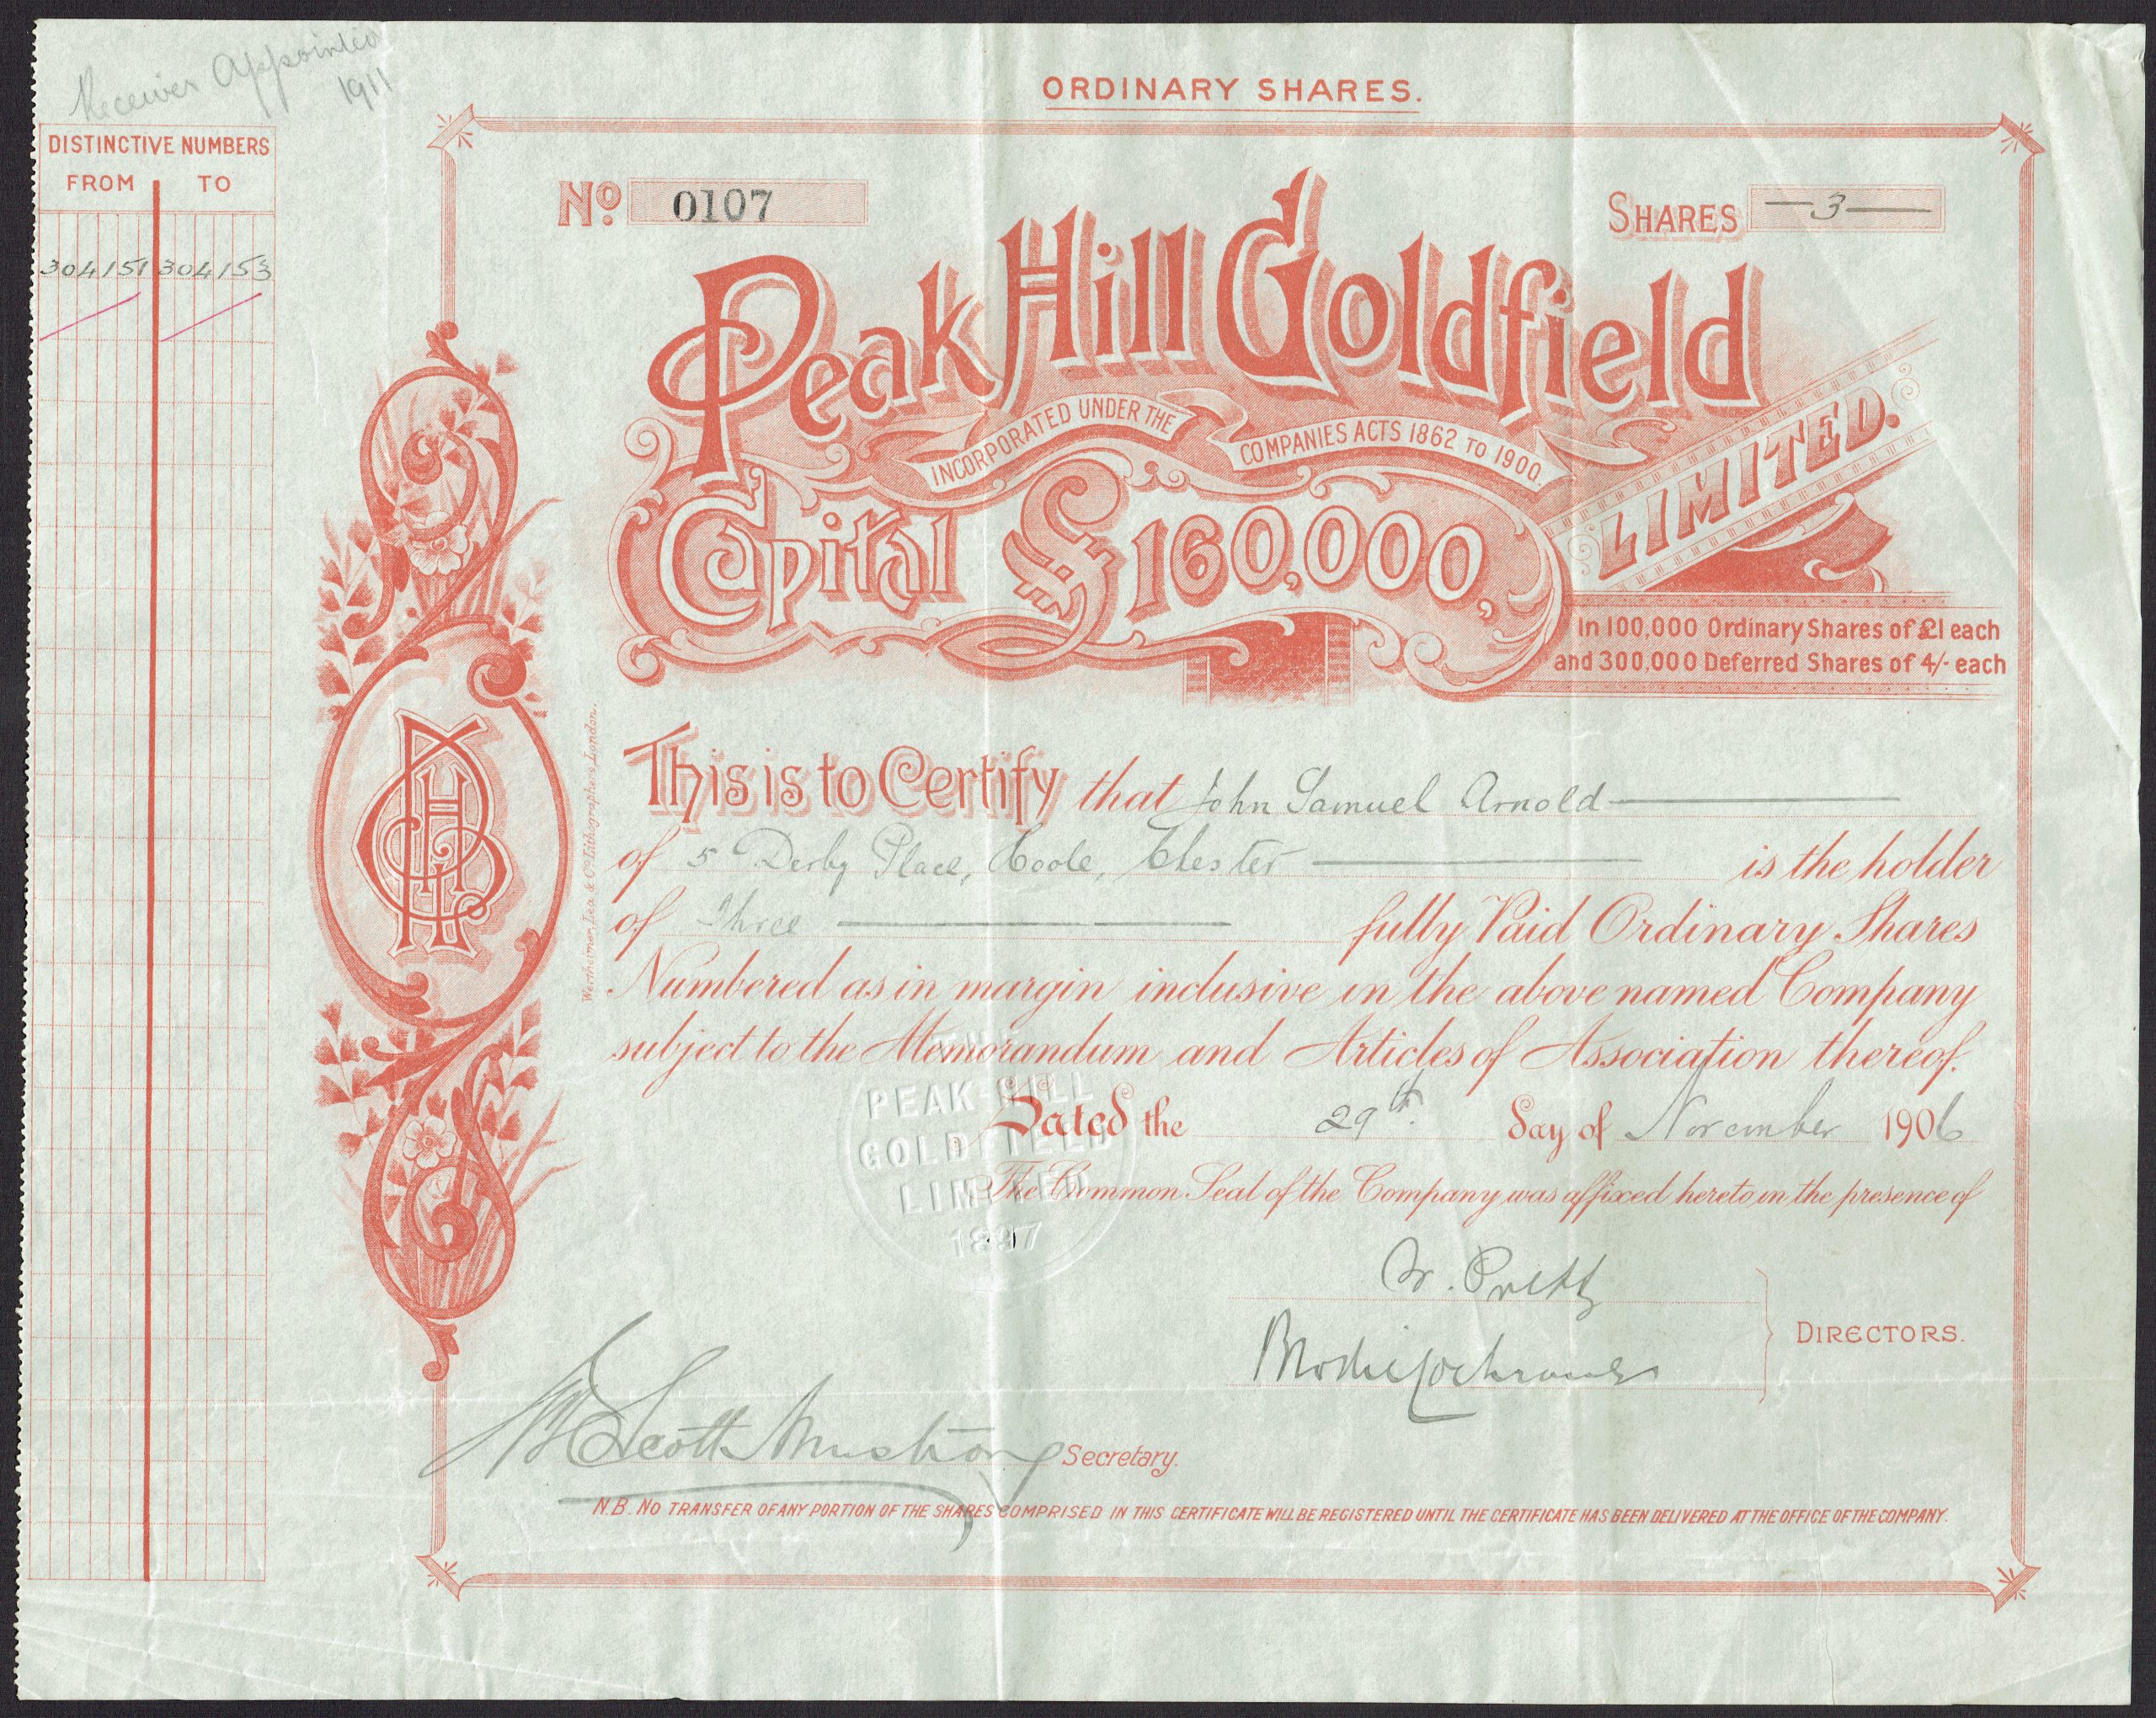 Receiver Appointed
1911
ORDINARY SHARES.
DISTINCTIVE NUMBERS
FROM TO
304151 304153
No. 0107
SHARES 3
Peak Hill Goldfield
LIMITED.
INCORPORATED UNDER THE COMPANIES ACTS 1862 TO 1900.
Capital £160,000,
In 100,000 Ordinary Shares of £1 each
and 300,000 Deferred Shares of 4/- each
This is to Certify that John Samuel Arnold
of 5 Derby Place, Hoole, Chester is the holder
of Three fully Paid Ordinary Shares
Numbered as in margin inclusive in the above named Company
subject to the Memorandum and Articles of Association thereof.
Dated the 29th. Day of November 1906
The Common Seal of the Company was affixed hereto in the presence of
THE
PEAK HILL
GOLDFIELD
LIMITED
1897
DIRECTORS.
Scott Armstrong Secretary.
N.B. NO TRANSFER OF ANY PORTION OF THE SHARES COMPRISED IN THIS CERTIFICATE WILL BE REGISTERED UNTIL THE CERTIFICATE HAS BEEN DELIVERED AT THE OFFICE OF THE COMPANY.
Wertheimer, Lea & Co. Lithographers, London.